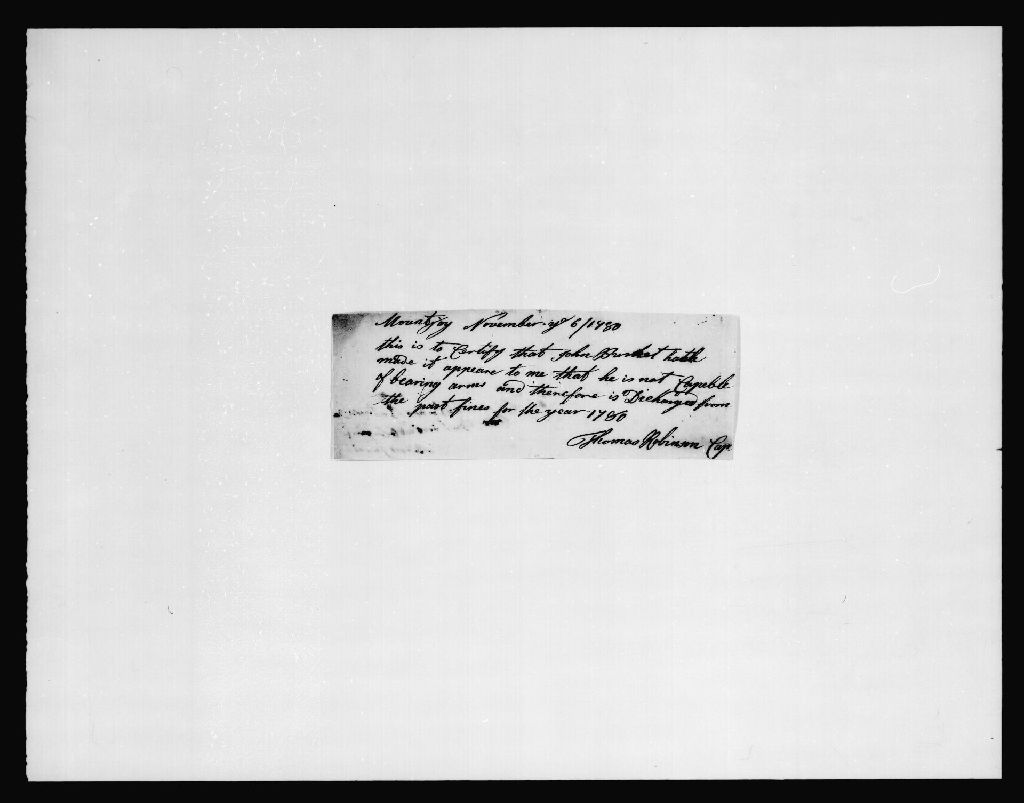 Mountjoy November ye 6/1780
this is to Certify that John Burket hath
made it appeare to me that he is not Capeble
of bearing arms and therefore is Dicharged from
the past fines for the year 1780
Thomas Robinson Cap